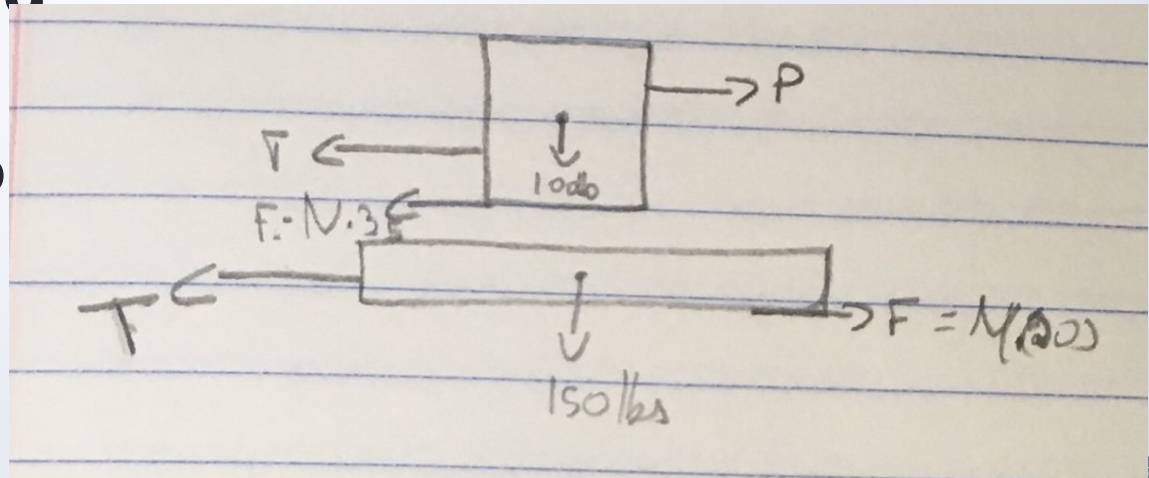 P
T
100lb
F=N.3
T
F = N(.20)
150lbs